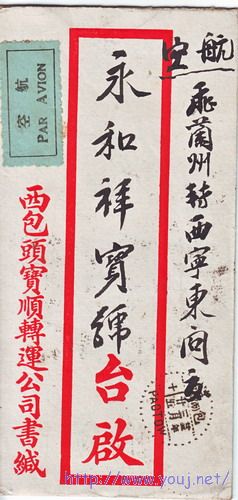 航空
蘭州转西寧東
永和祥寶號台啟
航空
PAR AVION
西包頭寶順轉運公司書緘
PAOTOW
http://www.youj.net/